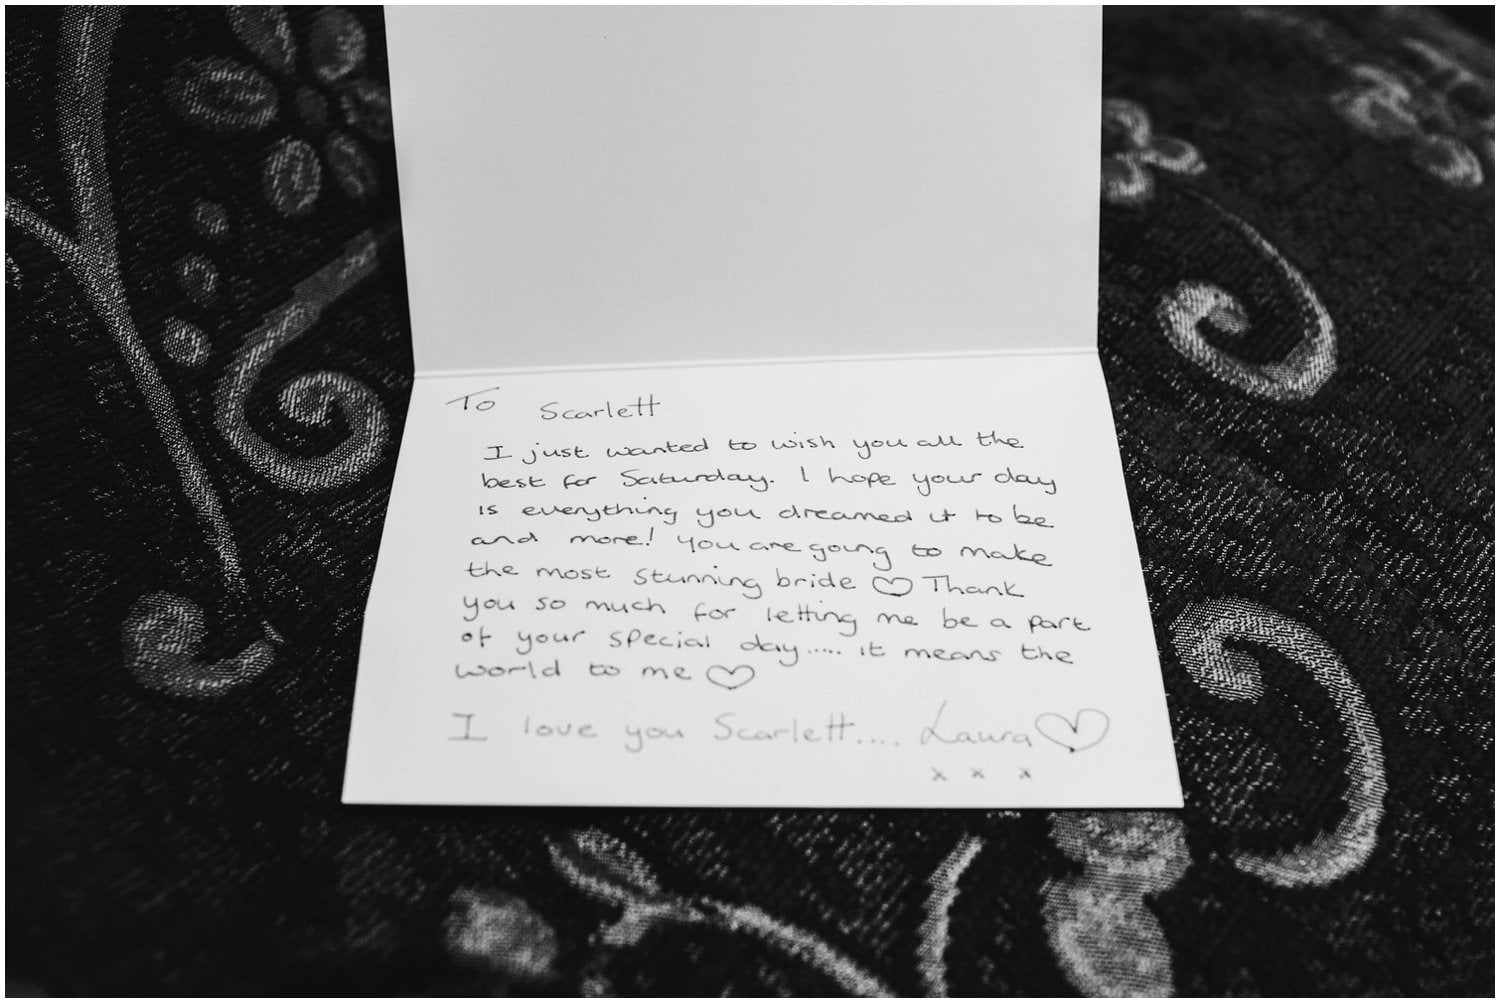 To Scarlett
I just wanted to wish you all the
best for Saturday. I hope your day
is everything you dreamed it to be
and more! You are going to make
the most stunning bride ♡ Thank
you so much for letting me be a part
of your special day..... it means the
world to me ♡
I love you Scarlett.... Laura ♡
x x x